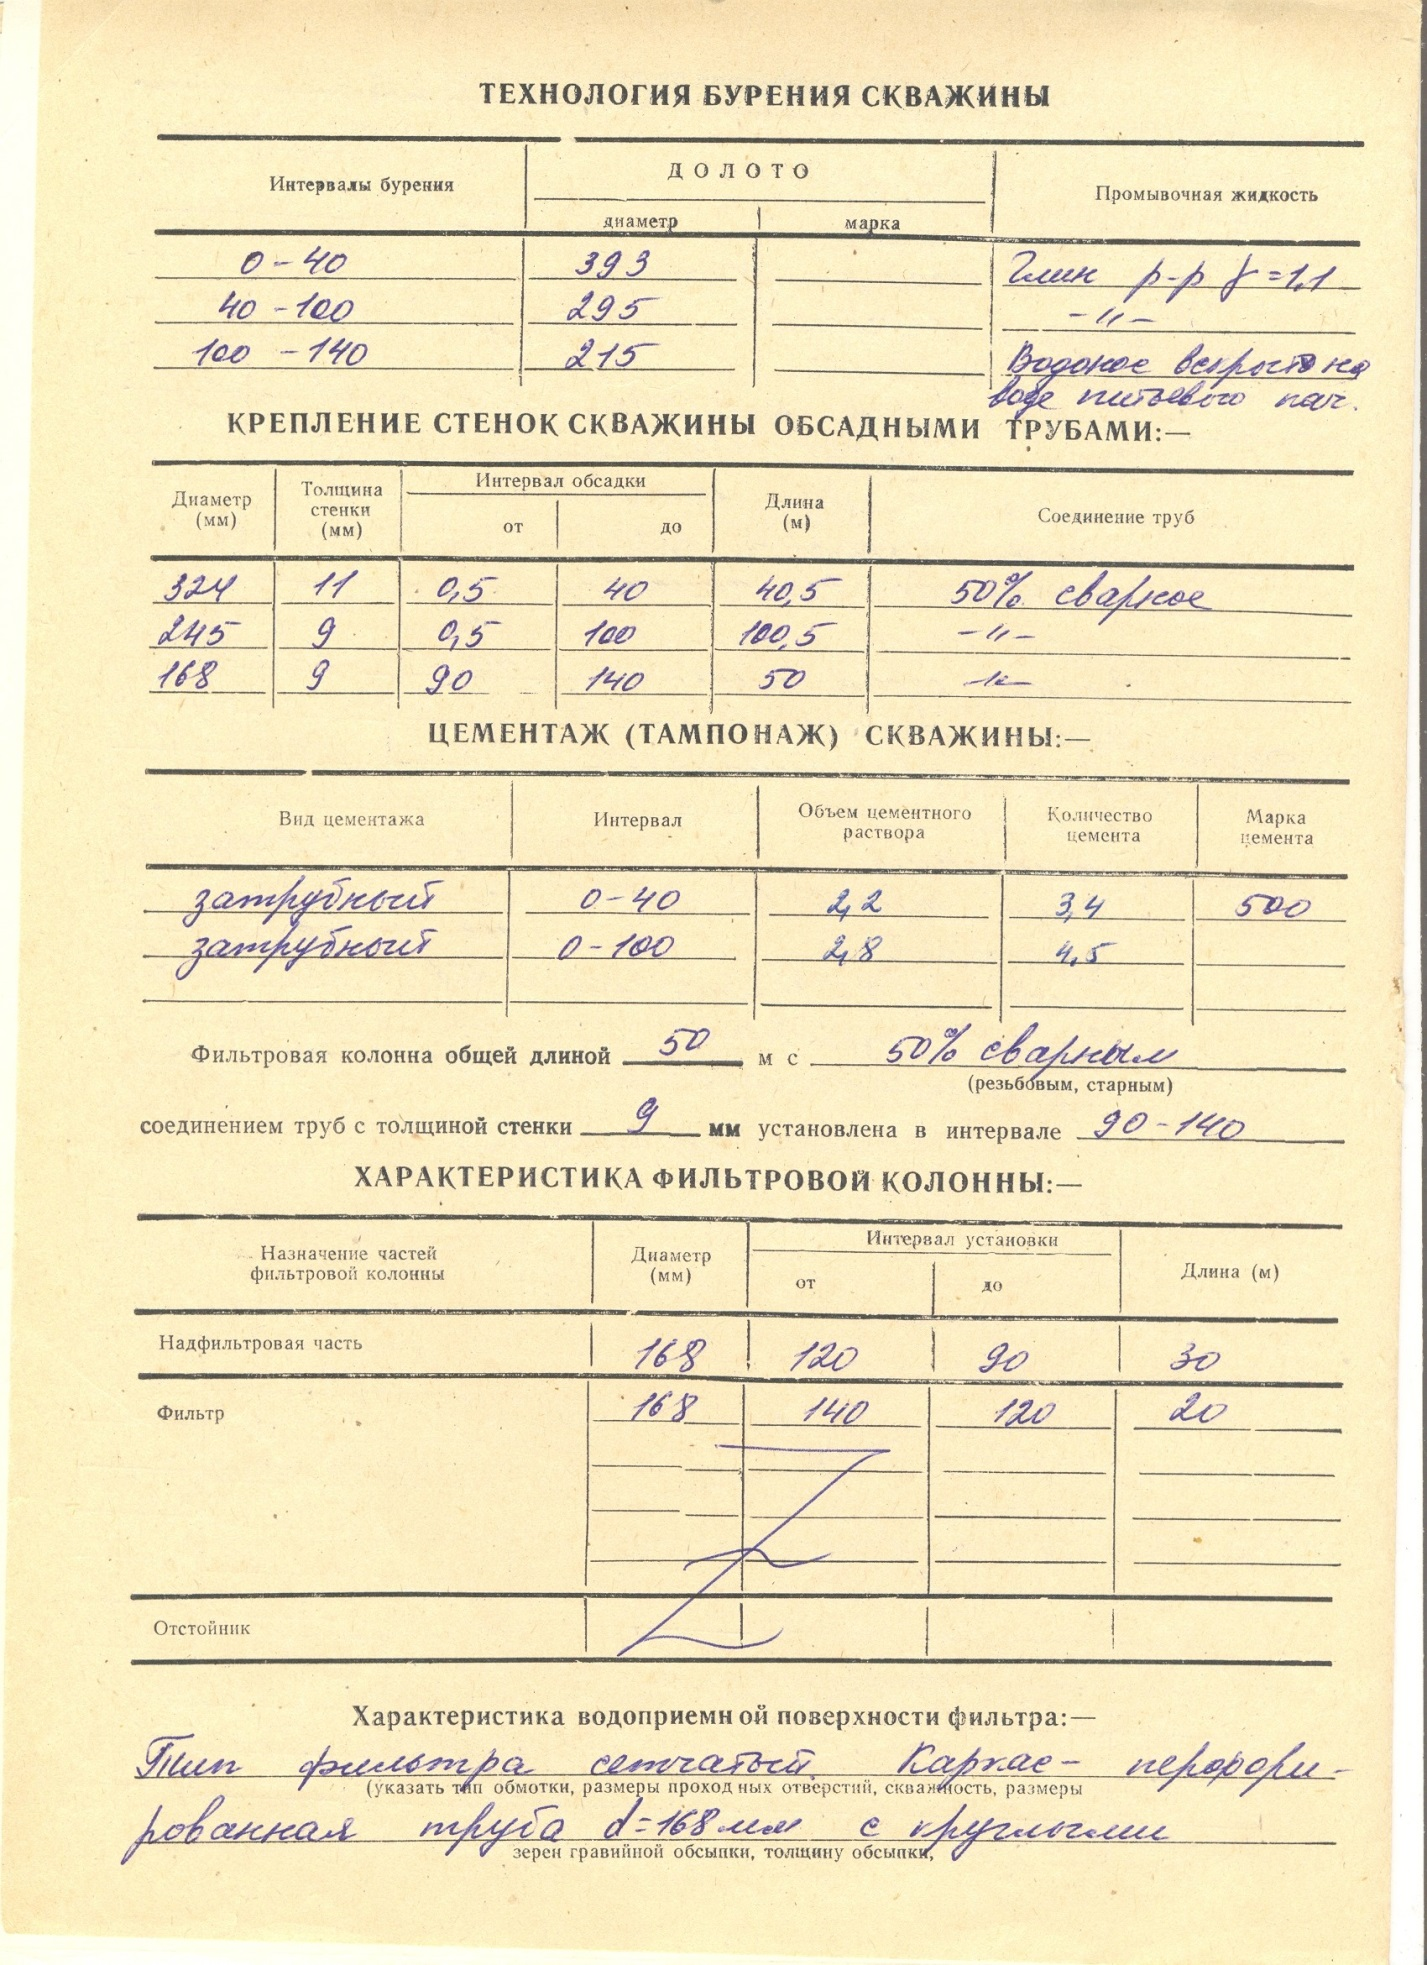 ТЕХНОЛОГИЯ БУРЕНИЯ СКВАЖИНЫ
Интервалы бурения ДОЛОТО Промывочная жидкость
диаметр марка
0-40 393 Глин р-р γ=1,1
40-100 295 -"-
100-140 215 Водонос вскрыто на
воде питьевого кач.
КРЕПЛЕНИЕ СТЕНОК СКВАЖИНЫ ОБСАДНЫМИ ТРУБАМИ:—
Диаметр (мм) Толщина стенки (мм) Интервал обсадки Длина (м) Соединение труб
от до
324 11 0,5 40 40,5 50% сварное
245 9 0,5 100 100,5 -"-
168 9 90 140 50 -"-
ЦЕМЕНТАЖ (ТАМПОНАЖ) СКВАЖИНЫ:—
Вид цементажа Интервал Объем цементного раствора Количество цемента Марка цемента
затрубный 0-40 2,2 3,4 500
затрубный 0-100 2,8 4,5
Фильтровая колонна общей длиной 50 м с 50% сварным
(резьбовым, старным)
соединением труб с толщиной стенки 9 мм установлена в интервале 90-140
ХАРАКТЕРИСТИКА ФИЛЬТРОВОЙ КОЛОННЫ:—
Назначение частей фильтровой колонны Диаметр (мм) Интервал установки Длина (м)
от до
Надфильтровая часть 168 120 90 30
Фильтр 168 140 120 20
Отстойник
Характеристика водоприемной поверхности фильтра:—
Тип фильтра сетчатый Каркас- перфори-
(указать тип обмотки, размеры проходных отверстий, скважность, размеры
рованная труба d=168 мм с круглыми
зерен гравийной обсыпки, толщину обсыпки,